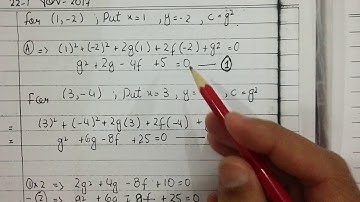 22-1 NOV-2019
for (1,-2) ; Put x=1 , y=-2 , c=g²
Ⓐ => (1)² + (-2)² + 2g(1) + 2f(-2) + g² = 0
g² + 2g - 4f + 5 = 0 — ①
for (3,-4) ; Put x=3 , y= , c=g²
= (3)² + (-4)² + 2g(3) + 2f(-4) +
= g² + 6g - 8f + 25 = 0
①x2 => 2g² + 4g - 8f + 10 = 0
- ② => g² + 6g - 8f + 25 = 0